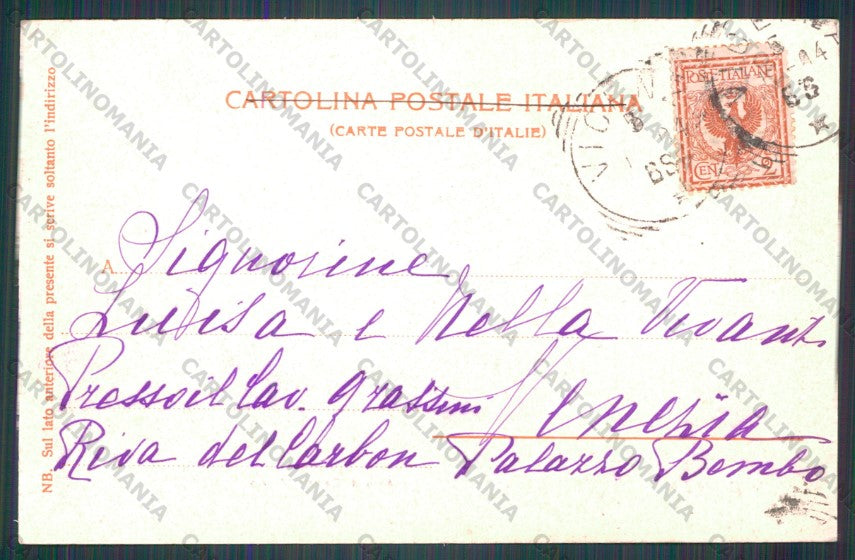 CARTOLINA POSTALE ITALIANA
(CARTE POSTALE D'ITALIE)
POSTE ITALIANE
CEN. 2
NB. Sul lato anteriore della presente si scrive soltanto l'indirizzo
A Signorine
Luisa e Nella Vivanti
Presso il Cav. Grassini Venezia
Riva del Carbon Palazzo Bembo
CARTOLINOMANIA